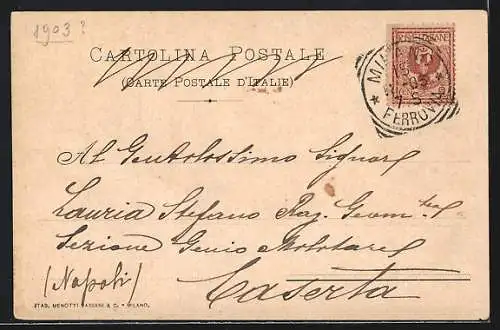 1903?
CARTOLINA POSTALE
(CARTE POSTALE D'ITALIE)
MILANO
FERROVIA
Al Gentilissimo Signor
Lauria Stefano Rag. Geom.
Sezione Genio Militare
(Napoli)
Caserta
STAB. MENOTTI BASSANI & C. - MILANO.